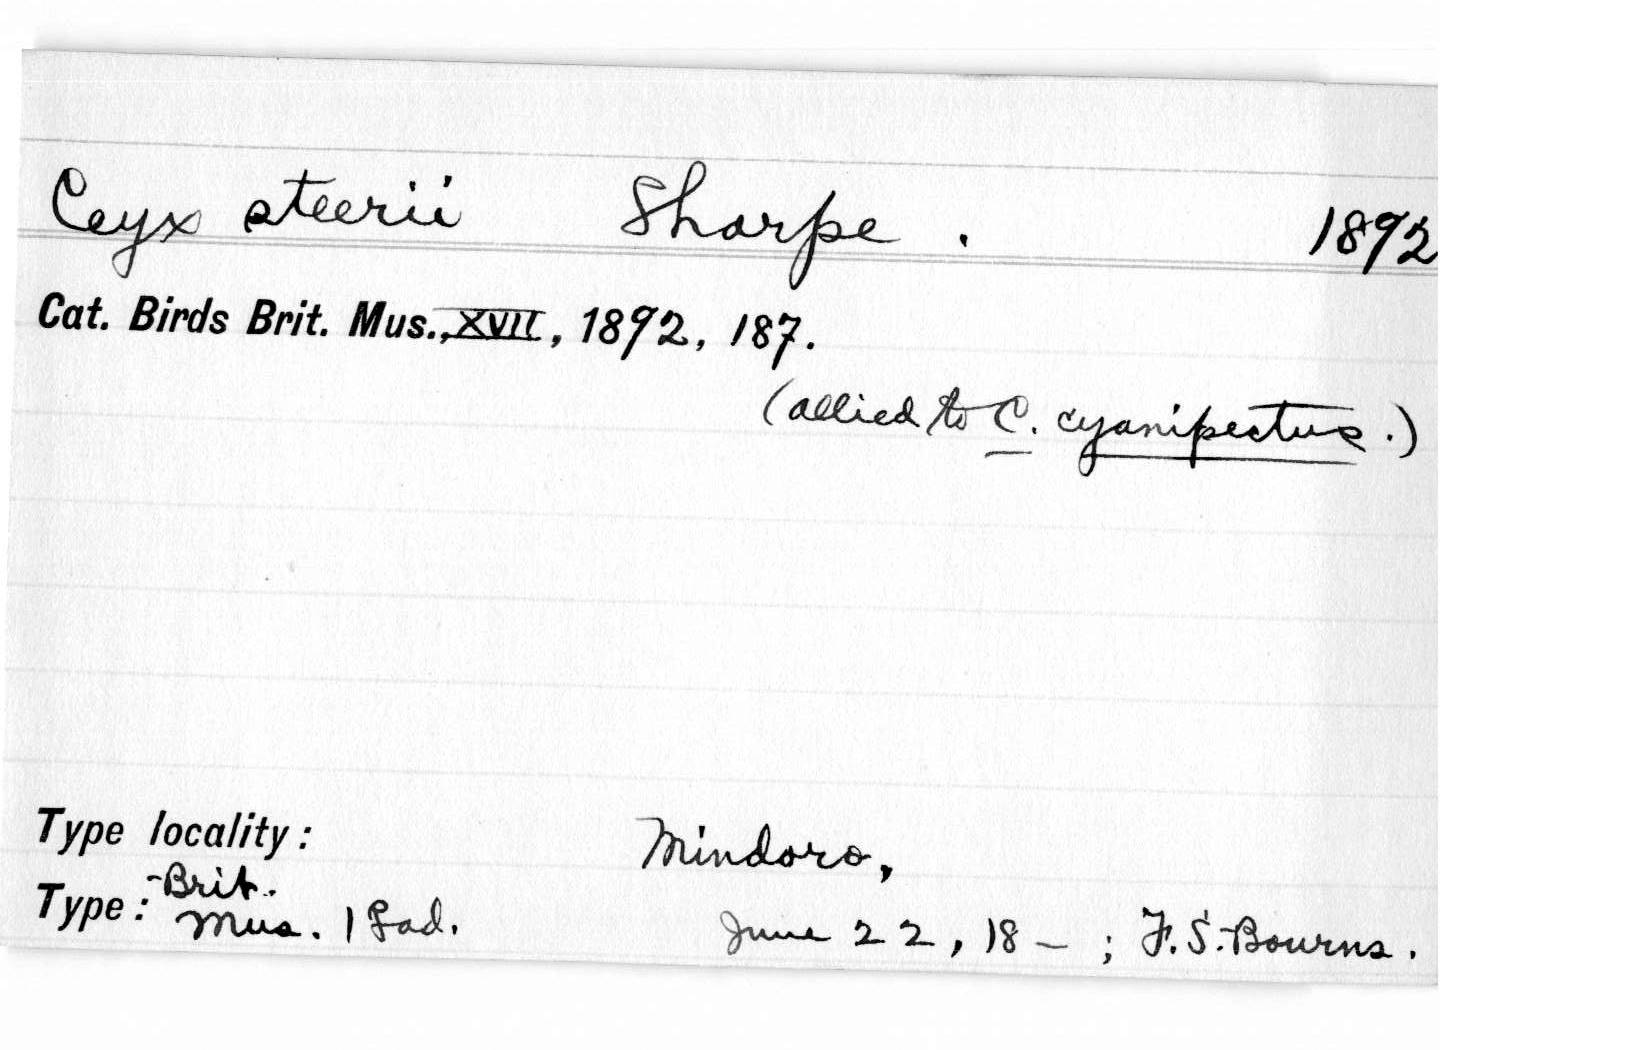 Ceyx steerii Sharpe. 1892
Cat. Birds Brit. Mus., XVII, 1892, 187.
(allied to C. cyanipectus.)
Type locality: Mindoro,
Type: Brit. Mus. 1 ♀ad. June 22, 18–; F.S. Bourns.